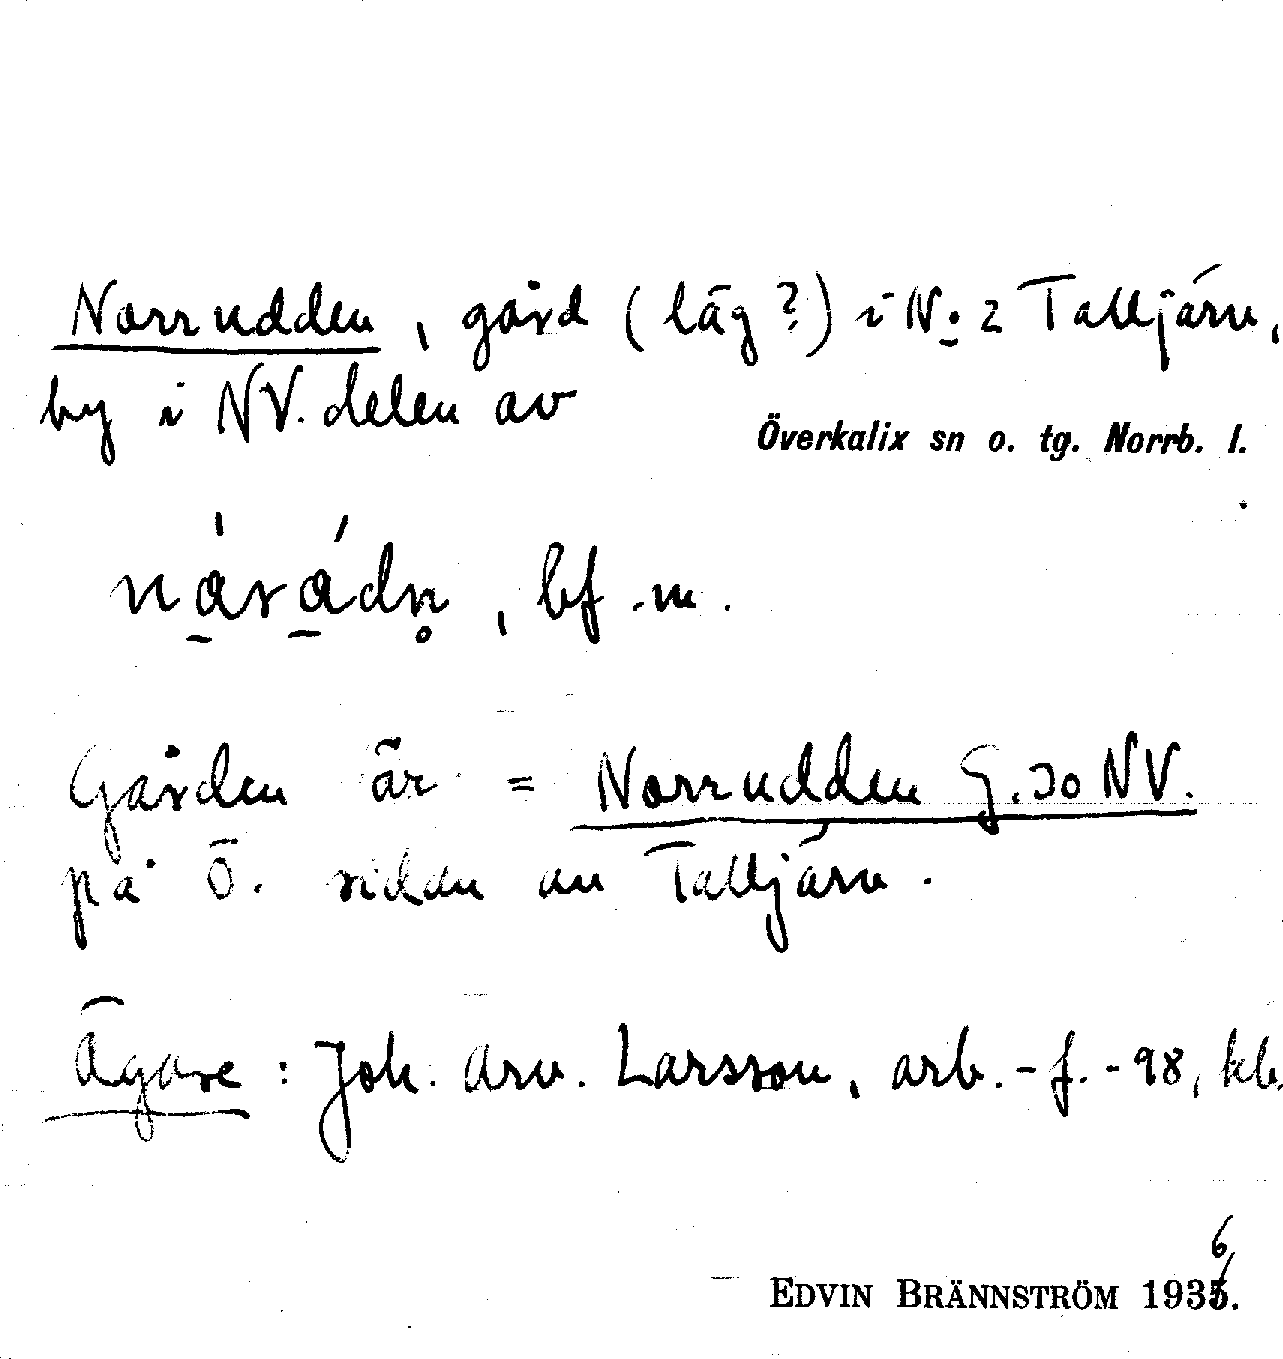 Norrudden, gård (läg?) i No. 2 Talljärv,
by i NV. delen av
Överkalix sn o. tg. Norrb. l.
nárádn̥, bf. m.
Gården är = Norrudden G. 30 NV.
på Ö. sidan av Talljärv.
Ägare: Joh. Arv. Larsson, arb. - f. - 98, kb.
6
EDVIN BRÄNNSTRÖM 1935.